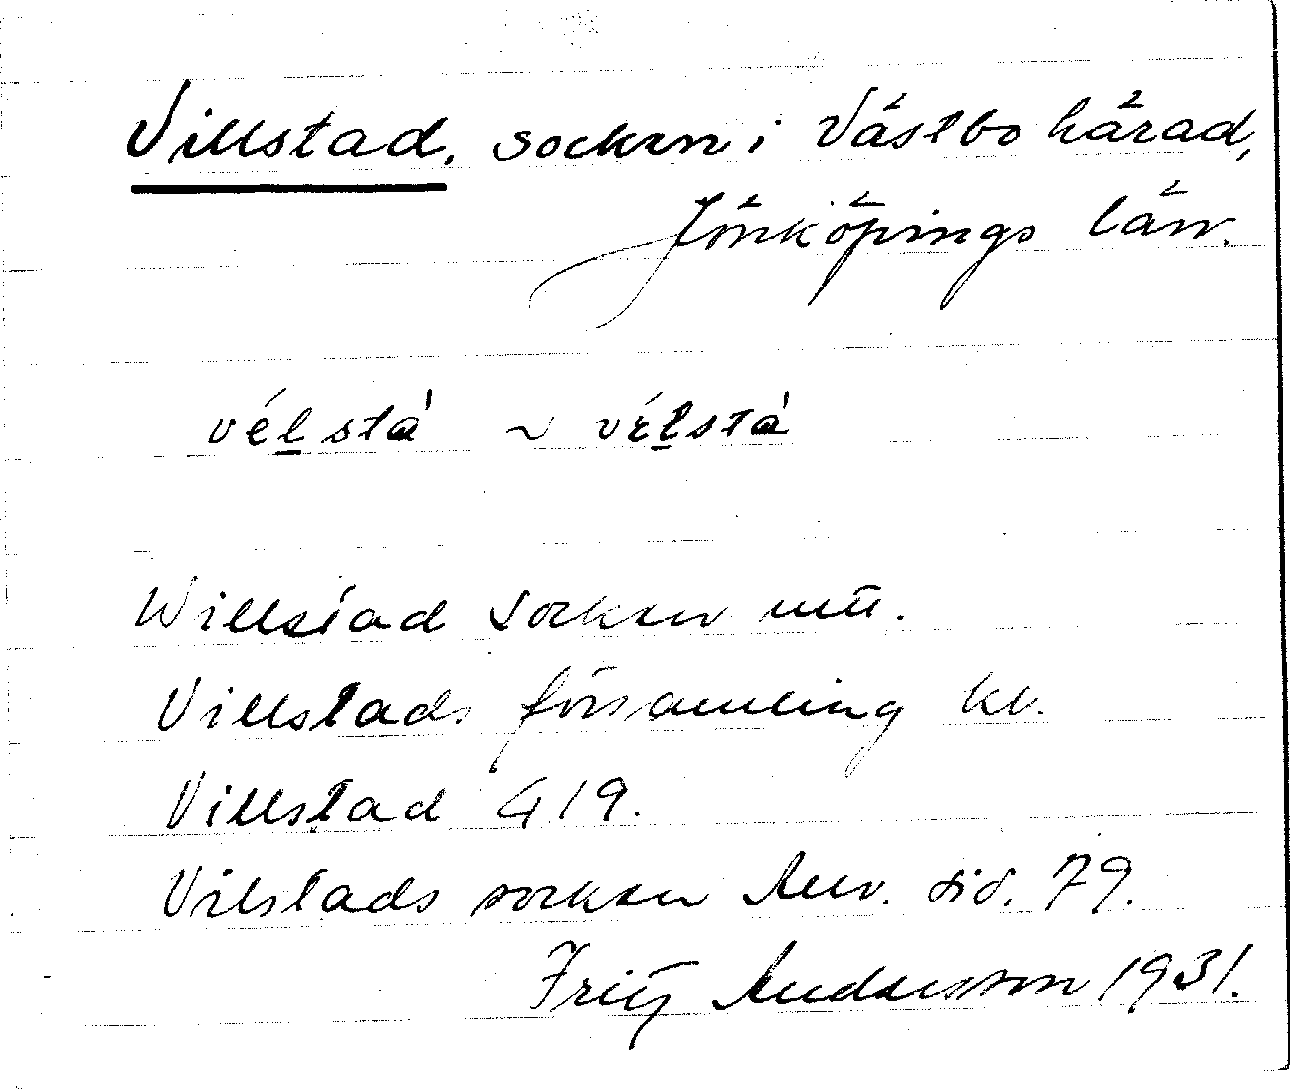 Villstad, socken i Västbo härad,
Jönköpings län.
vél̲stà ~ vél̲stà
Willstad socken mtl.
Villstads församling kb.
Villstad G 19.
Vilstads socken Anv. sid. 79.
Fritz Andersson 1931.